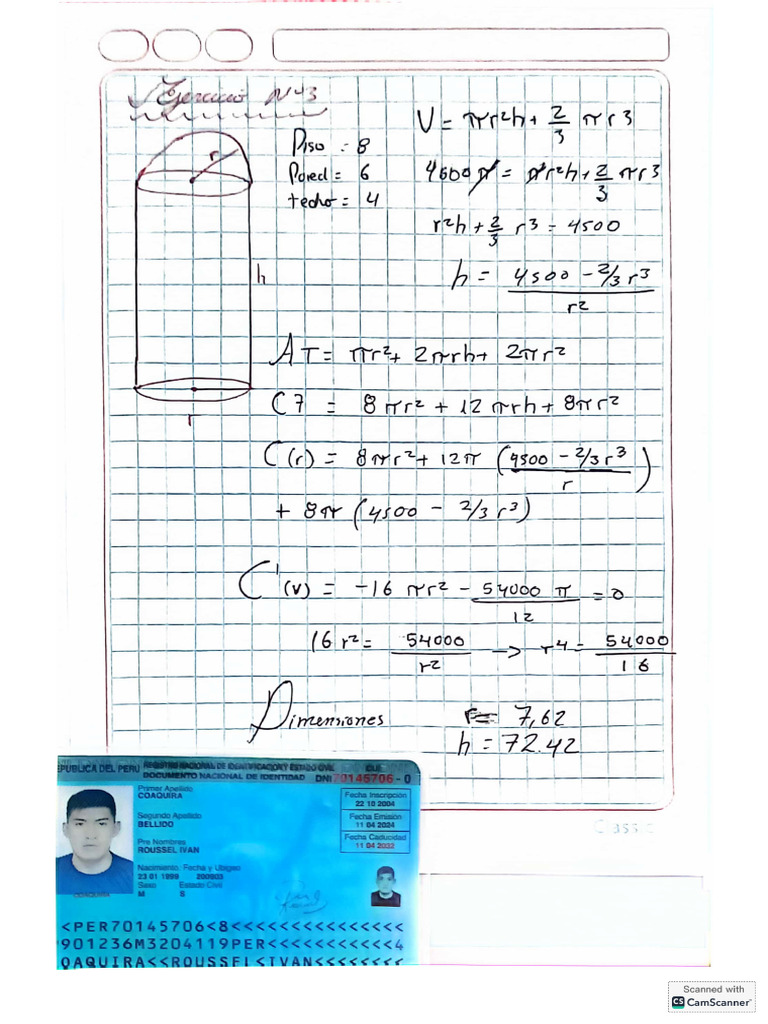 Ejercicio N°3
Piso = 8
Pared = 6
techo = 4
r
h
r
V = πr²h + 2/3 πr³
4500π = πr²h + 2/3 πr³
r²h + 2/3 r³ = 4500
h = (4500 - 2/3 r³)/r²
AT = πr² + 2πrh + 2πr²
CT = 8πr² + 12πrh + 8πr²
C(r) = 8πr² + 12π ((4500 - 2/3 r³)/r)
+ 8π (4500 - 2/3 r³)
C'(v) = -16πr² - 54000π/12 = 0
16r² = 54000/r² → r4 = 54000/16
Dimensiones
r = 7,62
h = 72.42
EPUBLICA DEL PERU REGISTRO NACIONAL DE IDENTIFICACION Y ESTADO CIVIL CUI
DOCUMENTO NACIONAL DE IDENTIDAD DNI 70145706 - 0
Primer Apellido
COAQUIRA
Segundo Apellido
BELLIDO
Pre Nombres
ROUSSEL IVAN
Nacimiento: Fecha y Ubigeo
23 01 1999 200903
Sexo Estado Civil
M S
Fecha Inscripción
22 10 2004
Fecha Emisión
11 04 2024
Fecha Caducidad
11 04 2032
COAQUIRA
<PER70145706<8<<<<<<<<<<<<<<<
901236M3204119PER<<<<<<<<<<<4
OAQUIRA<<ROUSSEL<IVAN<<<<<<<<
Classic
Scanned with
CS CamScanner